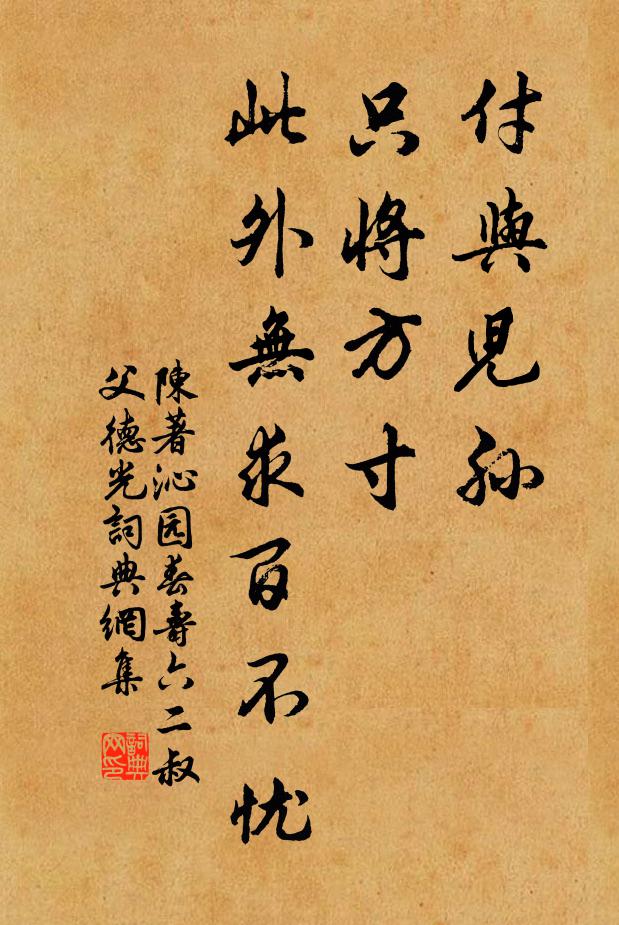 付與兒孫
只將方寸
此外無求百不忧
陳著沁园春壽六二叔
父德光詞典網集
詞典
网印